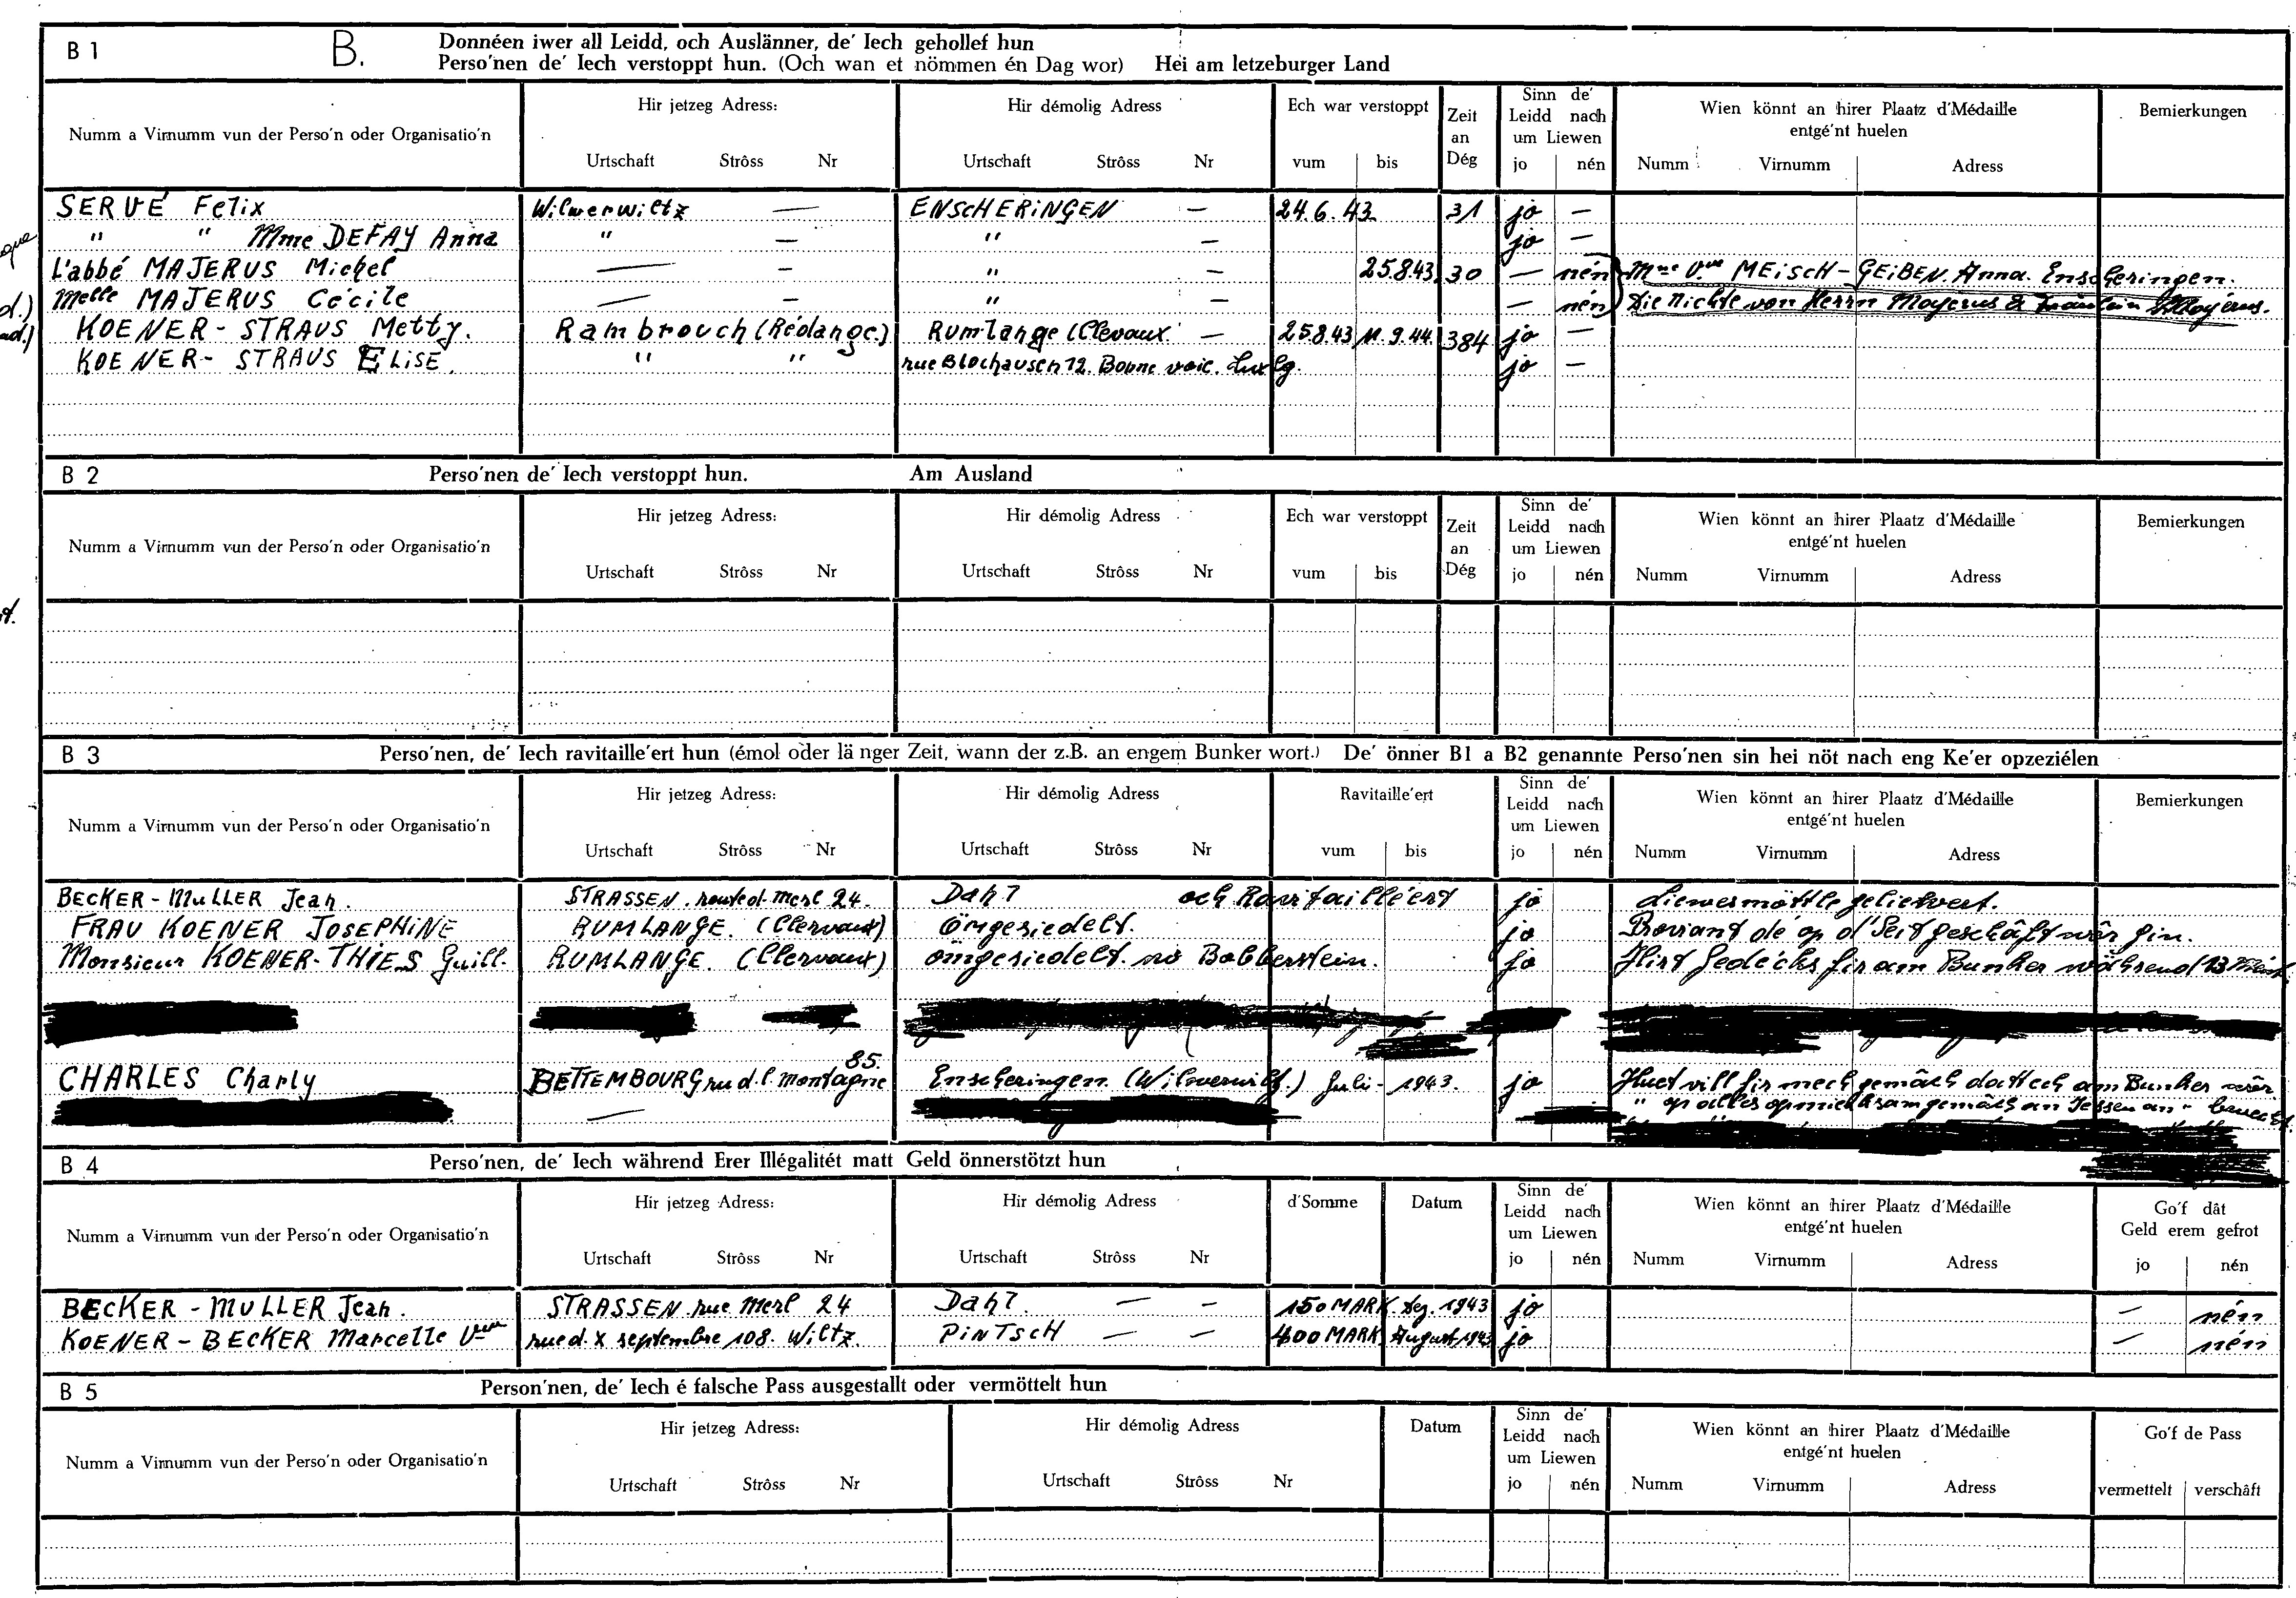 B 1 B. Donnéen iwer all Leidd, och Auslänner, de' Iech gehollef hun
Perso'nen de' Iech verstoppt hun. (Och wan et nömmen én Dag wor) Hei am letzeburger Land
Numm a Virnumm vun der Perso'n oder Organisatio'n
Hir jetzeg Adress:
Urtschaft Strôss Nr
Hir démolig Adress
Urtschaft Strôss Nr
Ech war verstoppt
vum bis
Zeit
an
Dég
Sinn de'
Leidd nach
um Liewen
jo nén
Wien könnt an hirer Plaatz d'Médaille
entgé'nt huelen
Numm Virnumm Adress
Bemierkungen
SERVÉ Felix Wilwerwiltz — ENSCHERiNGEN — 24.6.43 31 jo —
" " Mme DEFAY Anna " — " — jo —
L'abbé MAJERUS Michel — — " — 25.8.43 30 — nén Mme Vve MEiSCH-GEiBEN. Anna. Enscheringen.
Melle MAJERUS Cécile — — " — — nén Die Nichte von Herrn Majerus & Fräulein Majérus.
KOENER-STRAUS Metty. Rambrouch (Rédange.) Rumlange (Clevaux. — 25.8.43 11.9.44. 384 jo —
KOENER-STRAUS ELiSE. " " rue Blochausen 12. Bonne voie. Luxbg. jo —
B 2 Perso'nen de' Iech verstoppt hun. Am Ausland
Numm a Virnumm vun der Perso'n oder Organisatio'n
Hir jetzeg Adress:
Urtschaft Strôss Nr
Hir démolig Adress
Urtschaft Strôss Nr
Ech war verstoppt
vum bis
Zeit
an
Dég
Sinn de'
Leidd nach
um Liewen
jo nén
Wien könnt an hirer Plaatz d'Médaille
entgé'nt huelen
Numm Virnumm Adress
Bemierkungen
B 3 Perso'nen, de' Iech ravitaille'ert hun (émol oder länger Zeit, wann der z.B. an engem Bunker wort.) De' önner B1 a B2 genannte Perso'nen sin hei nöt nach eng Ke'er opzeziélen
Numm a Virnumm vun der Perso'n oder Organisatio'n
Hir jetzeg Adress:
Urtschaft Strôss Nr
Hir démolig Adress
Urtschaft Strôss Nr
Ravitaille'ert
vum bis
Sinn de'
Leidd nach
um Liewen
jo nén
Wien könnt an hirer Plaatz d'Médaille
entgé'nt huelen
Numm Virnumm Adress
Bemierkungen
BECKER-MuLLER Jean. STRASSEN. route d. Merl 24. Dahl och Ravitailléert jo Liewesmöttle geliewert.
FRAU KOENER JOSEPHiNE RUMLANGE. (Clervaux) ömgesiedelt. jo Proviant dé op d'Seit geschäft wör gin.
Monsieur KOENER-THiES Guill. RUMLANGE. (Clervaux) ömgesiedelt. no Bobberstein. jo fir am Bunker während 13
CHARLES Charly BETTEMBOURG ru d. l. montagne 85. Enscheringen (Wilwerwilt.) Juli - 1943. jo Huet vill fir mech gemâch dat ech am Bunker wär
" op alles opmierksam gemâch an Iessen an
—
B 4 Perso'nen, de' Iech während Erer Illégalitét matt Geld önnerstötzt hun
Numm a Virnumm vun der Perso'n oder Organisatio'n
Hir jetzeg Adress:
Urtschaft Strôss Nr
Hir démolig Adress
Urtschaft Strôss Nr
d'Somme
Datum
Sinn de'
Leidd nach
um Liewen
jo nén
Wien könnt an hirer Plaatz d'Médaille
entgé'nt huelen
Numm Virnumm Adress
Go'f dât
Geld erem gefrot
jo nén
BECKER - MULLER Jean. STRASSEN. rue Merl 24 Dahl. — — 150 MARK. Dez. 1943 jo — nén
KOENER - BECKER Marcelle Vve rue d. X septembre 108. Wiltz. PiNTSCH — — 400 MARK August 1943 jo — nén
B 5 Person'nen, de' Iech é falsche Pass ausgestallt oder vermöttelt hun
Numm a Virnumm vun der Perso'n oder Organisatio'n
Hir jetzeg Adress:
Urtschaft Strôss Nr
Hir démolig Adress
Urtschaft Strôss Nr
Datum
Sinn de'
Leidd nach
um Liewen
jo nén
Wien könnt an hirer Plaatz d'Médaille
entgé'nt huelen
Numm Virnumm Adress
Go'f de Pass
vermettelt verschâft